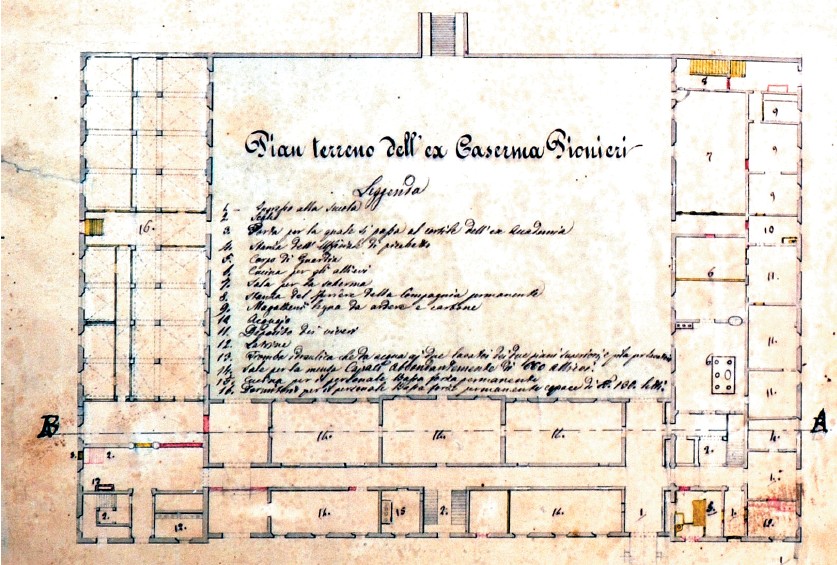 Pian terreno dell'ex Caserma Pionieri
Leggenda
1. Ingresso alla scuola
2. Scale
3 Porta per la quale si passa al cortile dell'ex Accademia
4. Stanza dell'Uffiziale di picchetto
5. Corpo di Guardia
6. Cucina per gli allievi
7. Sala per la scherma
8. Stanza del furiere della Compagnia permanente
9. Magazzeni legna da ardere e carbone
10 Acquajo
11. Deposito dei viveri
12. Latrine
13. Tromba idraulica che da acqua ai due lavatoi dei due piani superiori e
14. Sale per la mensa Capaci abbondantemente di allievi
15. Cucina per il personale Bassa forza permanente
16. Dormitorio per il personale Bassa forza permanente capace di N. 130 letti
8
9
7
9
9
16.
10
6
11.
11.
6
11.
B
A
14.
14.
14.
4.
3.
2.
2.
1.
2.
12.
14.
15
2.
14.
1.
1.